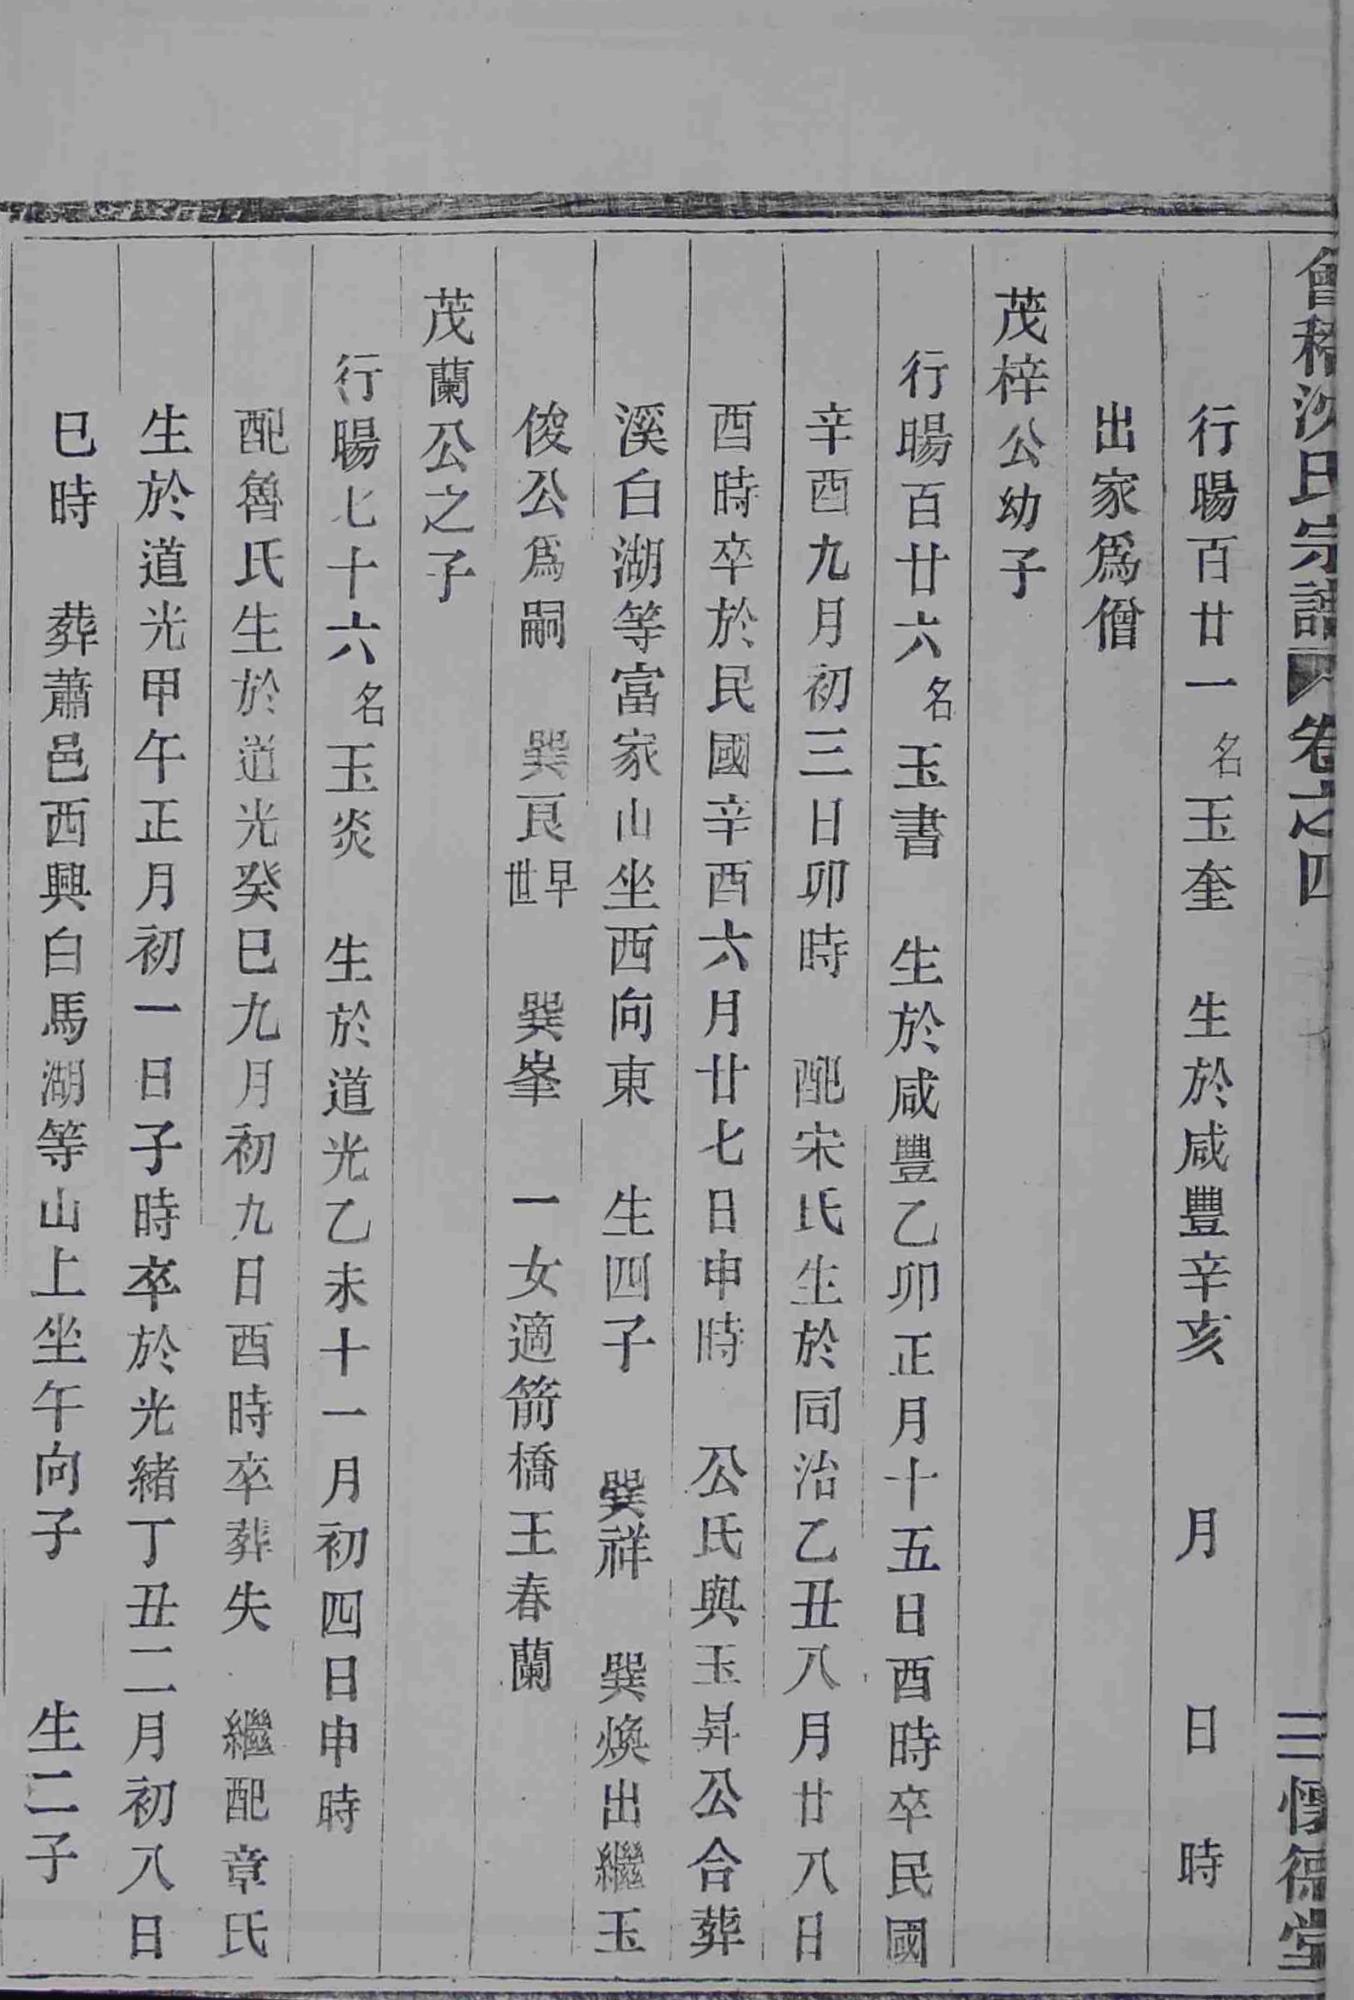 會稽沈氏宗譜 卷之四 三 懷德堂
行暘百廿一名玉奎 生於咸豐辛亥 月 日 時
出家爲僧
茂梓公幼子
行暘百廿六名玉書 生於咸豐乙卯正月十五日酉時卒民國
辛酉九月初三日卯時 配宋氏生於同治乙丑八月廿八日
酉時卒於民國辛酉六月廿七日申時 公氏與玉昇公合葬
溪白湖等富家山坐西向東 生四子 巽祥 巽煥出繼玉
俊公爲嗣 巽艮早世 巽峯 一女適箭橋王春蘭
茂蘭公之子
行暘七十六名玉炎 生於道光乙未十一月初四日申時
配魯氏生於道光癸巳九月初九日酉時卒葬失 繼配章氏
生於道光甲午正月初一日子時卒於光緒丁丑二月初八日
巳時 葬蕭邑西興白馬湖等山上坐午向子 生二子